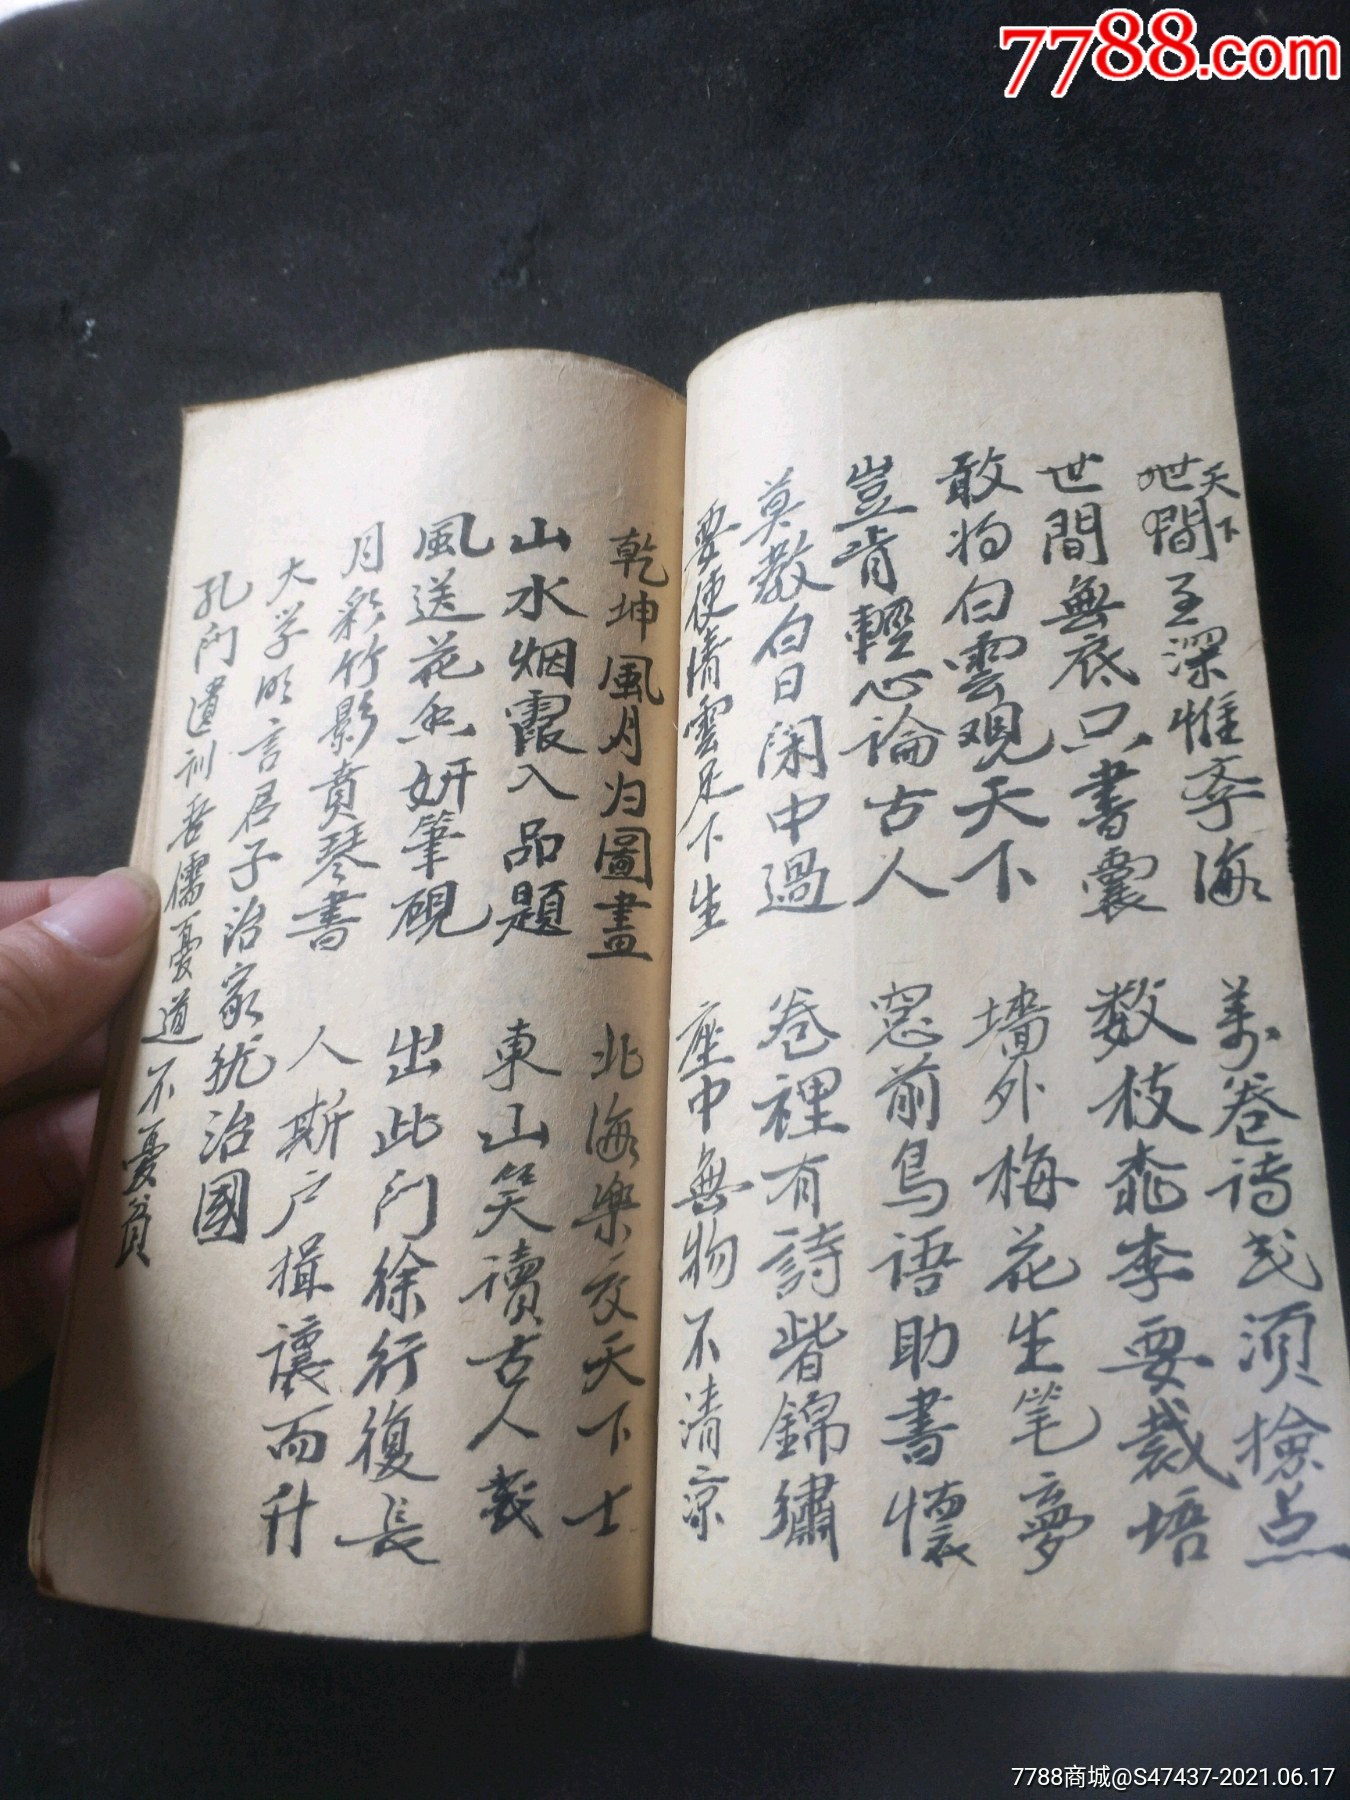 7788.com
天下
世間至深惟学海
萬卷詩書須撿点
世間無底只書囊
数枝桃李要裁培
敢将白雲观天下
墻外梅花生笔夢
豈肯輕心論古人
窓前鳥語助書懷
莫教白日闲中過
卷裡有詩皆錦繡
要使情雲足下生
座中無物不清凉
乾坤風月为圖畫
北海樂交天下士
山水烟霞入品題
東山笑讀古人書
風送花香妍筆硯
出此门徐行復長
月彩竹影賁琴書
人斯户揖讓而升
大学明言君子治家犹治國
孔门遺训吾儒憂道不憂貧
7788商城@S47437-2021.06.17